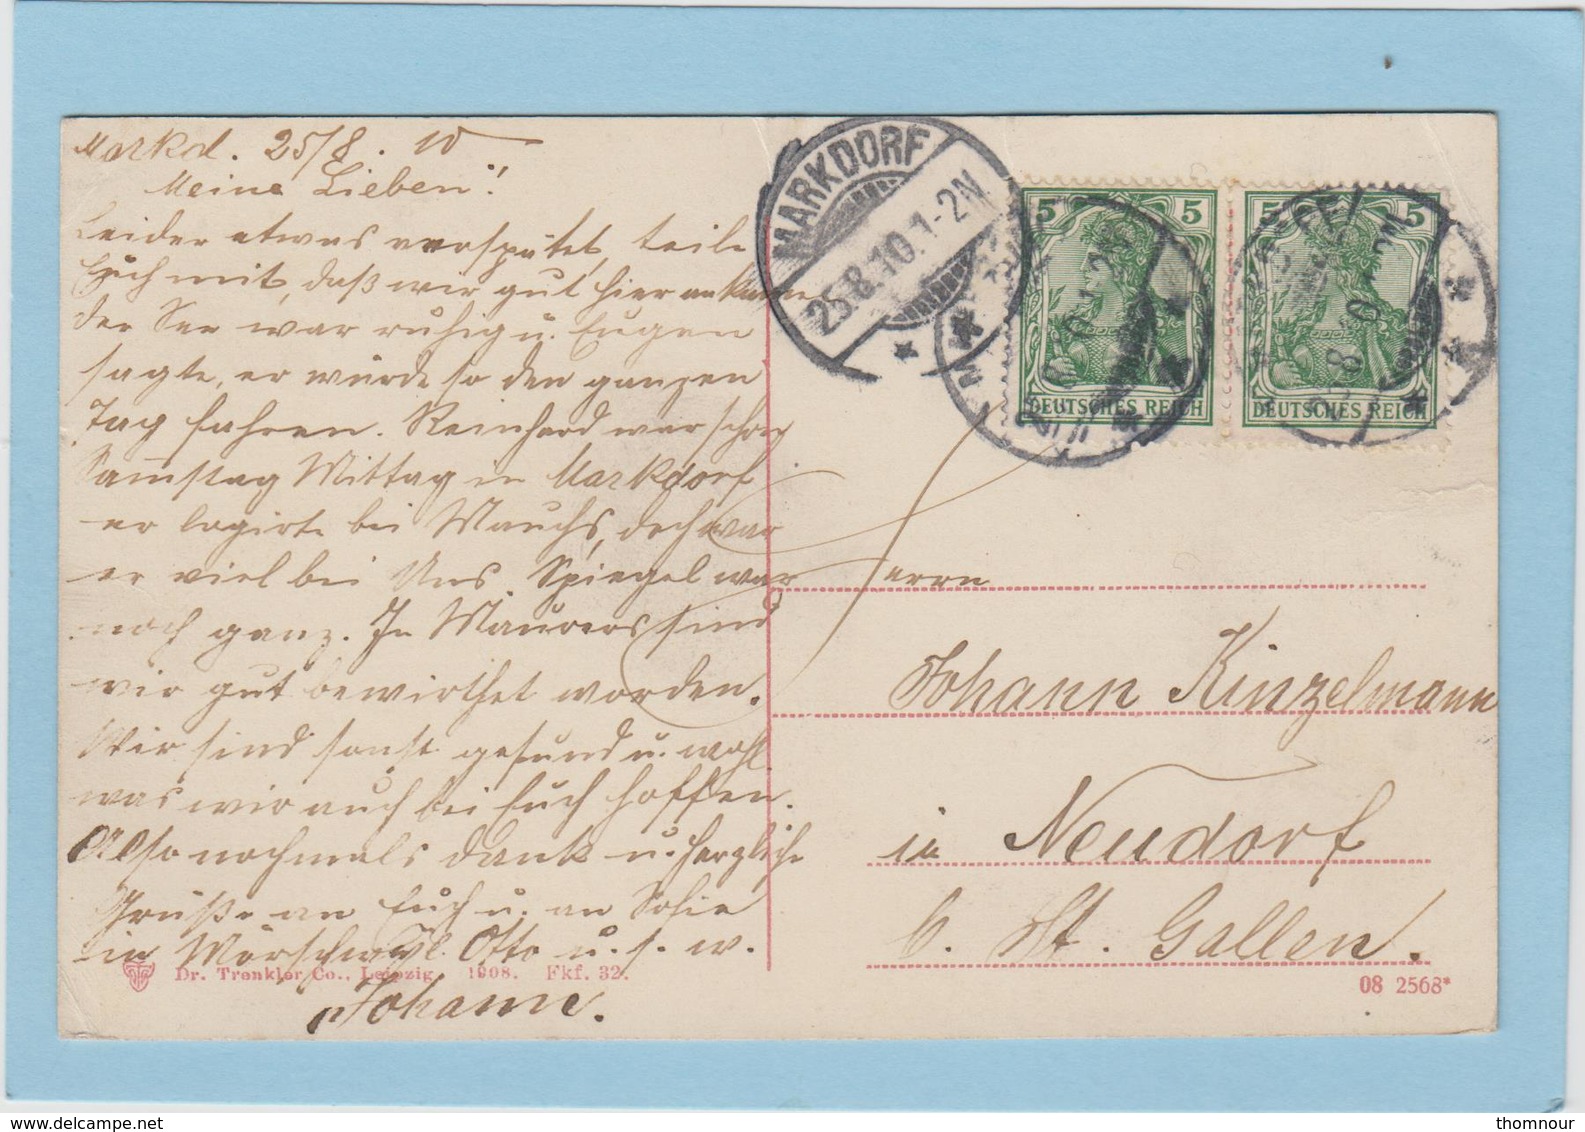 Markd. 25/8. 10
Meine Lieben!
Leider etwas verspätet, teile
Euch mit, daß wir gut hier ankamen
der See war ruhig u. Eugen
sagte, er würde so den ganzen
Tag fahren. Reinhard war schon
Samstag Mittag in Markdorf
er logirte bei Mauchs, doch war
er viel bei Uns. Spiegel war
noch ganz. In Maurers sind
wir gut bewirthet worden.
Wir sind sonst gesund u. wohl
was wir auch bei Euch hoffen.
Also nochmals Dank u. herzliche
Grüße an Euch u. an Sofie
in Mörschwyl. Otto u. s. w.
Johann.
Dr. Trenkler Co., Leipzig 1908. Fkf. 32.
MARKDORF
25.8.10.1-2N
5 5
DEUTSCHES REICH
5 5
DEUTSCHES REICH
Herrn
Johann Kinzelmann
in Neudorf
b. St. Gallen.
08 2568*
thomnour / www.delcampe.net